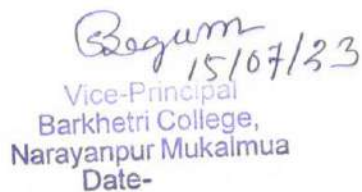 Begum
15/07/23
Vice-Principal
Barkhetri College,
Narayanpur Mukalmua
Date-